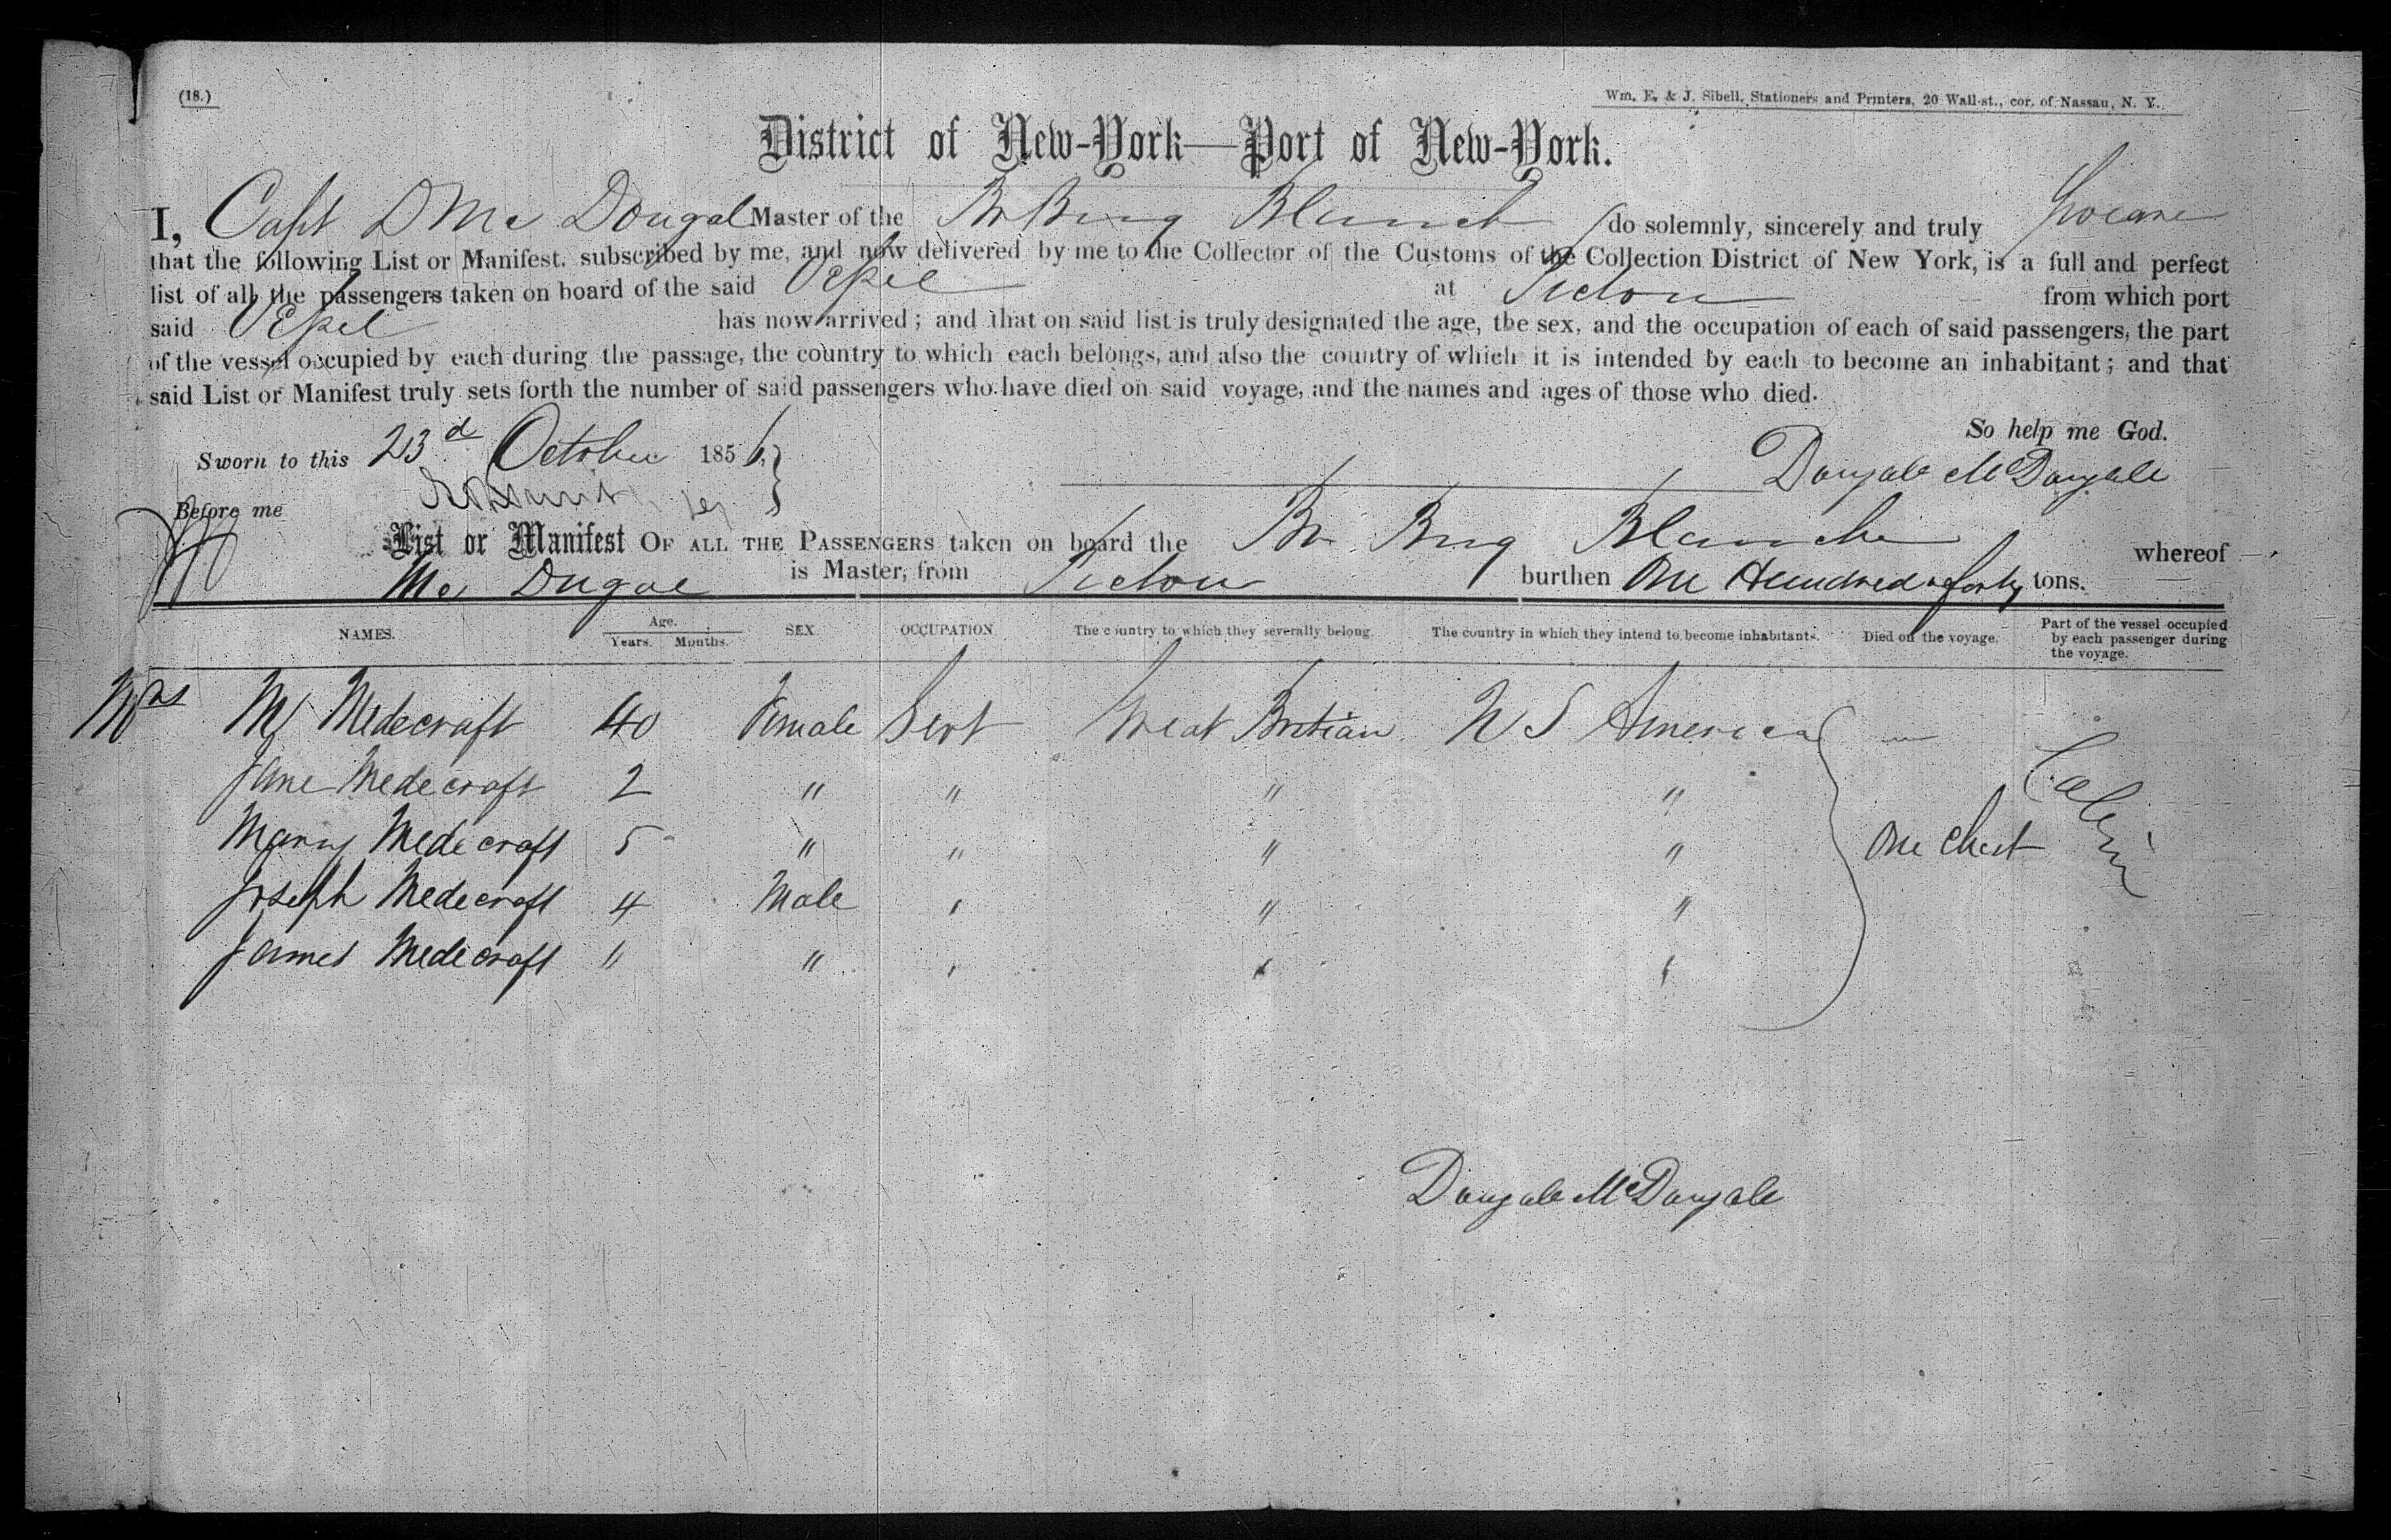 (18.)
Wm. E. & J. Sibell, Stationers and Printers, 20 Wall-st., cor. of Nassau, N. Y.
District of New-York—Port of New-York.
I, Capt D Mc Dougal Master of the Br Brig Blanch do solemnly, sincerely and truly Swear
that the following List or Manifest. subscribed by me, and now delivered by me to the Collector of the Customs of the Collection District of New York, is a full and perfect
list of all the passengers taken on board of the said Vessel at Pictou from which port
said Vessel has now arrived; and that on said list is truly designated the age, the sex, and the occupation of each of said passengers, the part
of the vessel occupied by each during the passage, the country to which each belongs, and also the country of which it is intended by each to become an inhabitant; and that
said List or Manifest truly sets forth the number of said passengers who have died on said voyage, and the names and ages of those who died.
So help me God.
Sworn to this 23d October 1856 }
Dougale McDougale
Before me
List or Manifest OF ALL THE PASSENGERS taken on board the Br Brig Blanche whereof
Mc Dugal is Master, from Pictou burthen One Hundred & forty tons.
NAMES. Age. Years. Months. SEX. OCCUPATION. The country to which they severally belong. The country in which they intend to become inhabitants. Died on the voyage. Part of the vessel occupied by each passenger during the voyage.
Mrs M Medecraft 40 Female Servt Great Britian U S America
Jane Medecraft 2 " " " "
Marry Medecraft 5 " " " " One Chest Cabin
Joseph Medecraft 4 Male " " "
James Medecraft " " " " "
Dougale McDougale